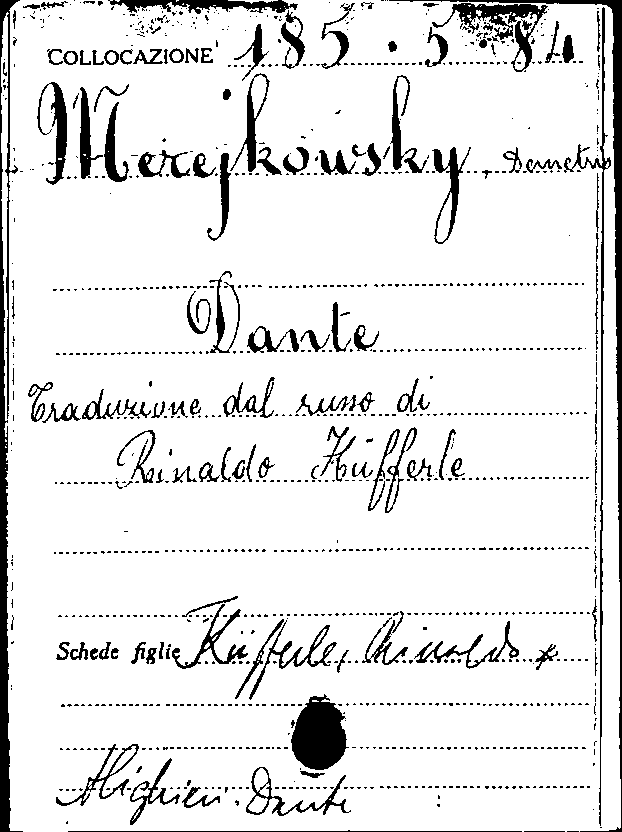 COLLOCAZIONE 185.5.84
Merejkowsky, Demetrio
Dante
Traduzione dal russo di
Rinaldo Küfferle
Schede figlie Küfferle, Rinaldo x
Alighieri. Dante